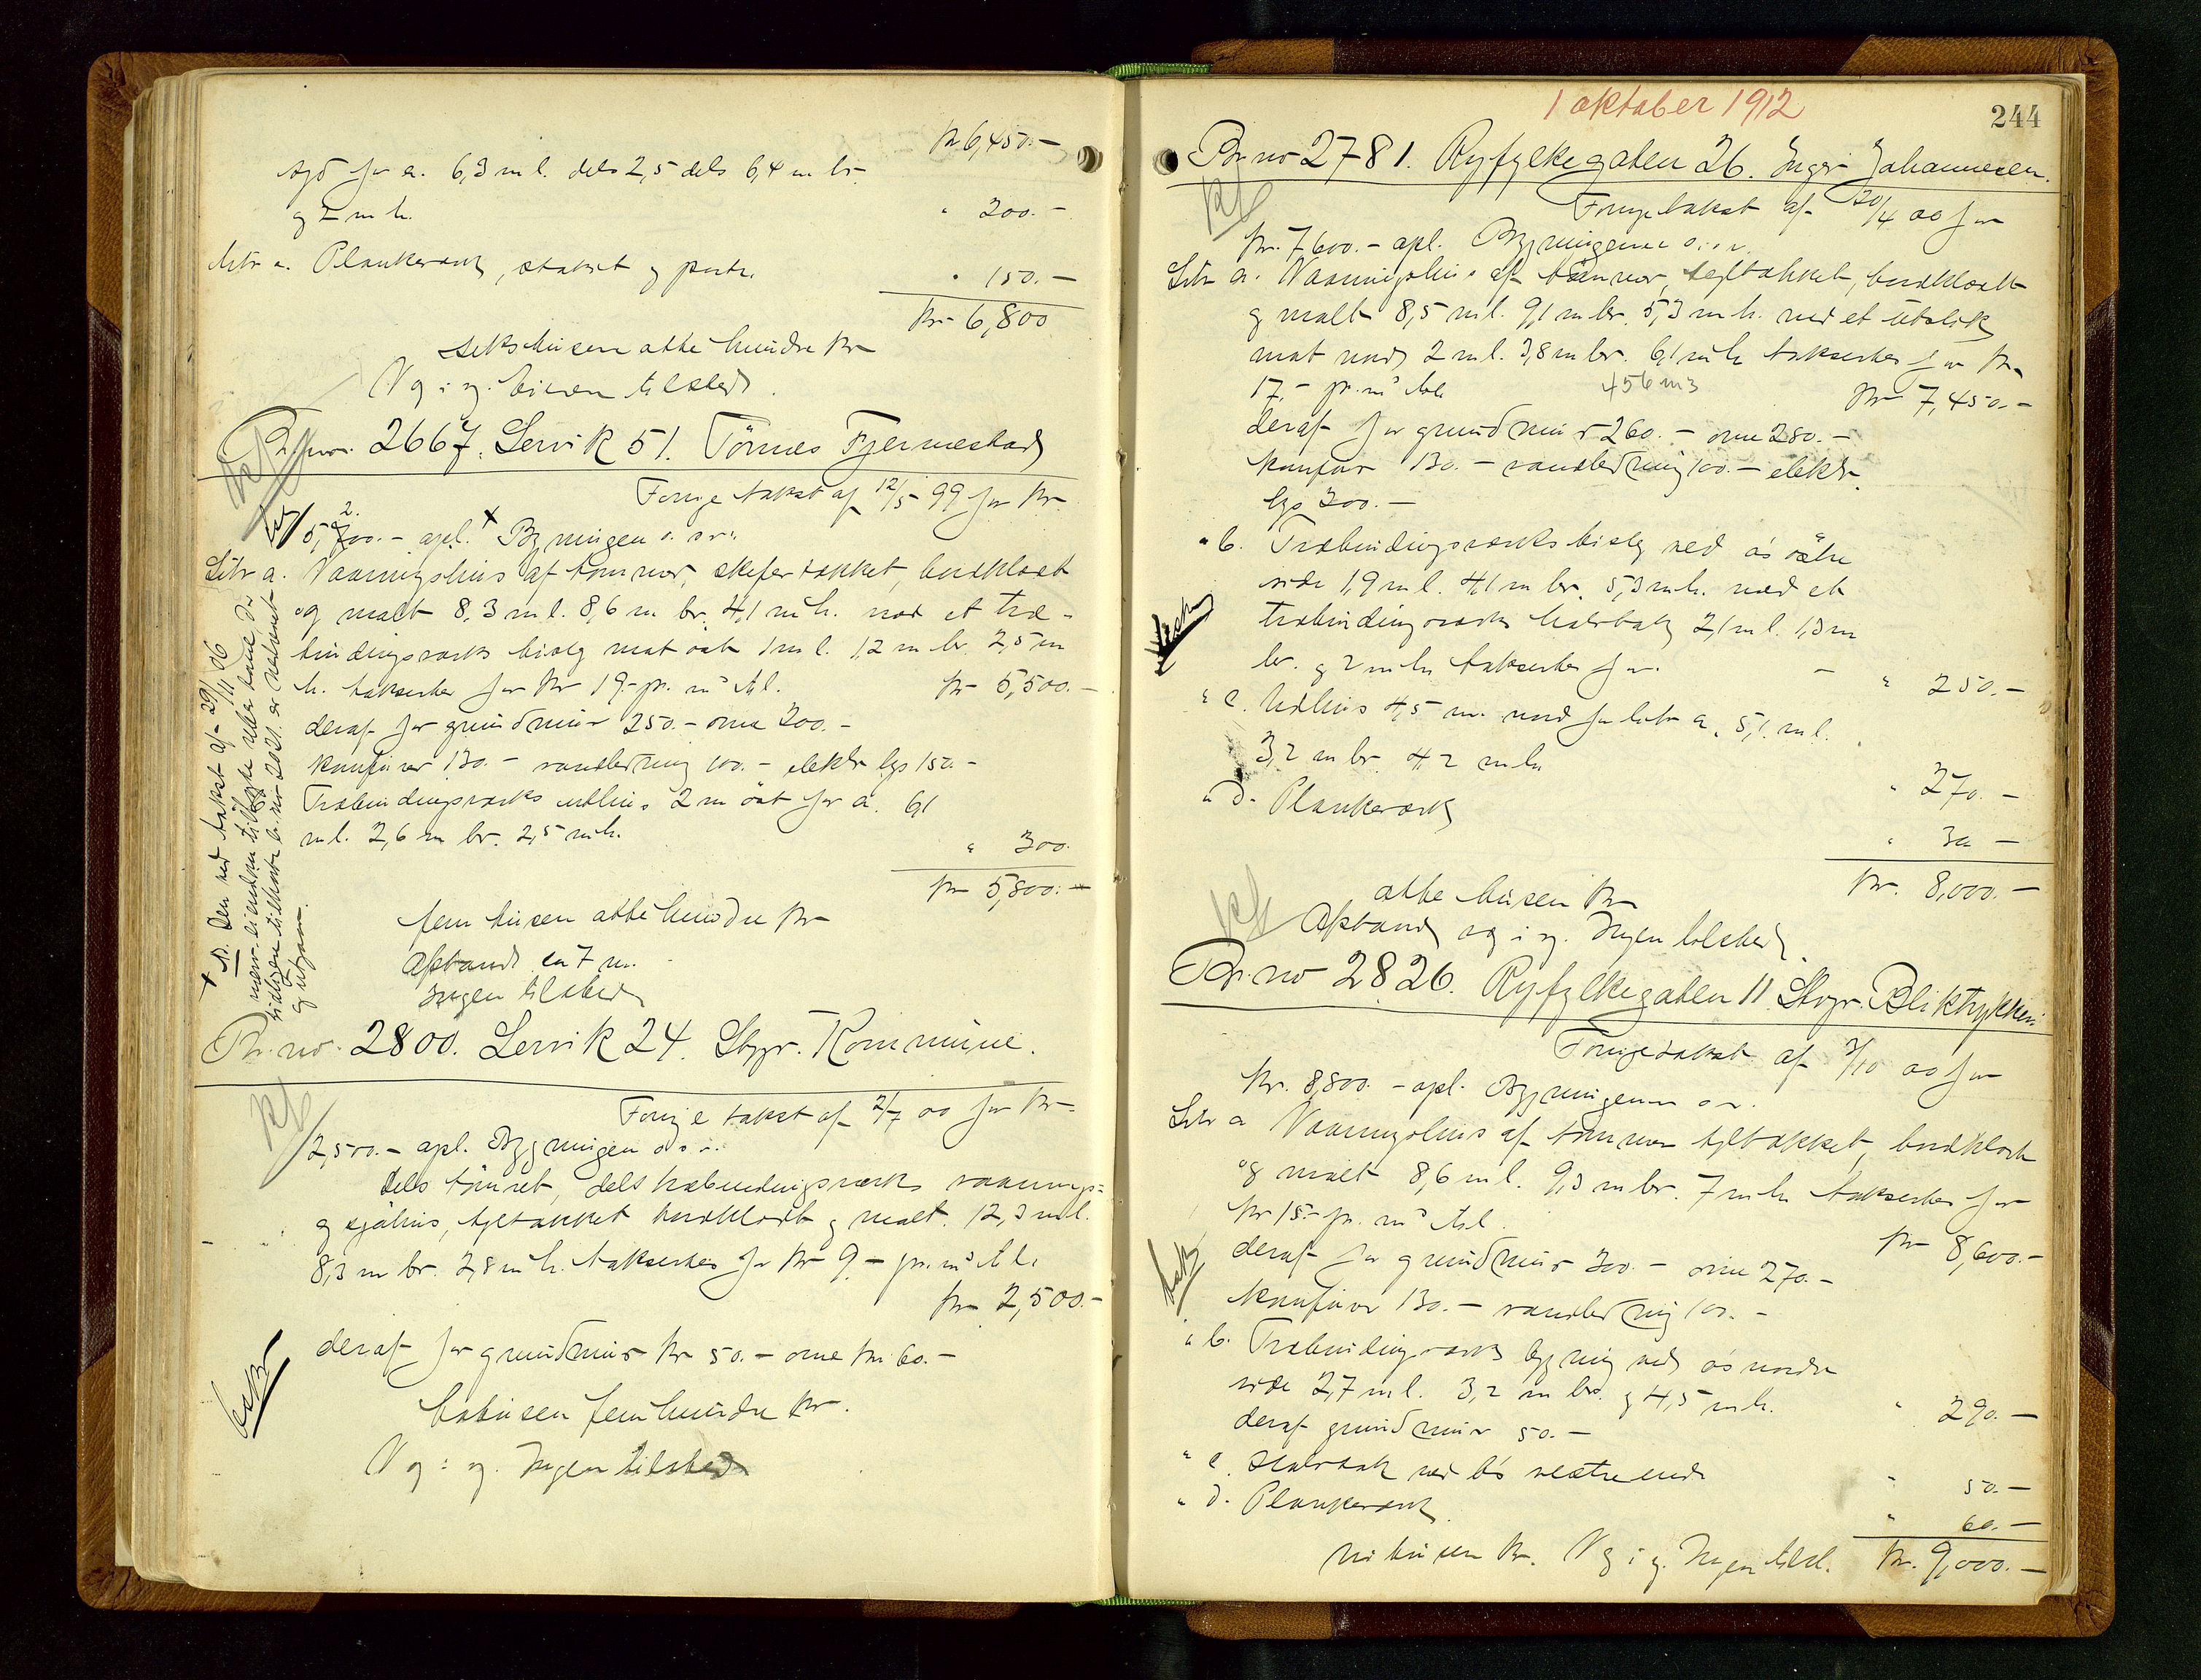 kr 6,450.-
syd for a. 6,3 m l. dels 2,5 dels 6,4 m br.
og 2 m h. " 200.-
litr e. Plankeværk, stakit og port. " 150.-
kr 6,800
seks tusen otte hundre kr
V g i g. Eieren tilsted.
Br.no. 2667. Lervik 51. Tönnes Fjermestad
Forrige takst af 12/5 99 for kr
5,200.- opl. x Bygningen o. s v:
Litr a. Vaaningshus af tömmer, skifertækket, bordklædt
og malt 8,3 m l. 8,6 m br. 4,1 m h. med et træ-
bindingsværks bislag mot öst 1 m l. 1,2 m br 2,5 m
h. takseres for kr 19.- pr. m³ til. kr 5,500.-
deraf for grundmur 250.- ovne 200.-
komfurer 130.- vandledning 100.- elektr lys 150.-
Træbindingsværks uthus 2 m öst for a. 6,1
m l. 2,6 m br. 2,5 m h. " 300.
kr 5,800.-
fem tusen otte hundre kr
Afstand ca 7 m.
Ingen tilsted
x N. Den ved takst af 29/11 06
og utgaar.
Br.no. 2800. Lervik 24. Stvgr. Kommune.
Forrige takst af 2/7 00 for kr
2,500.- opl. Bygningen o s v.
Dels tömret, dels træbindingsværks vaanings-
og sjöhus, tegltækket bordklædt og malt. 12,3 m l.
8,3 m br. 2,8 m h. takseres for kr 9.- pr. m³ til.
kr 2,500.-
deraf for grundmur kr 50.- ovne kr. 60.-
totusen fem hundre kr.
V g i g. Ingen tilsted
1 oktober 1912
244
Br.no 2781. Ryfylkegaten 26. Inger Johannesen.
Forrige takst af 20/4 00 for
kr. 7600.- opl. Bygningerne o. s. v.
Litr a. Vaaningshus af tömmer, tegltækket, bordklædt
og malt 8,5 m l. 9,1 m br. 5,3 m h. med et utstik
mot nord 2 m l. 3,8 m br. 6,1 m h takseres for kr.
17.- pr. m³ til 456 m3 kr 7,450.-
deraf for grundmur 260.- ovne 280.-
komfur 130.- vandledning 100.- elektr.
lys 200.-
" b. Træbindingsværks bislag ved a's östre
side 1,9 m l. 4,1 m br. 5,3 m h. med et
træbindingsværks halvtak 2,1 m l. 1,3 m
br. og 2 m h takseres for. " 250.-
" c. Uthus 4,5 m. nord for litr a. 5,1 m l.
3,2 m br. 4,2 m h " 270.-
" d. Plankeværk " 30 -
kr. 8,000.-
otte tusen kr
Afstand v g i g. Ingen tilsted.
Br.no 2826. Ryfylkegaten 11 Stvgr. Bliktrykkeri
Forrige takst af 3/10 00 for
kr. 8,800.- opl. Bygningerne o s v.
Litr a Vaaningshus af tömmer tegltækket, bordklædt
og malt 8,6 m l. 9,3 m br. 7 m h takseres for
kr 15.- pr. m³ til. kr 8,600.-
deraf for grundmur 300.- ovne 270.-
komfurer 130.- vandledning 100.-
" b. Træbindingsværks bygning ved a's nordre
side 2,7 m l. 3,2 m br. og 4,5 m h. " 290.-
deraf grundmur 50.-
" c. Halvtak ved b's vestre ende " 50.-
" d. Plankeværk " 60.-
ni tusen kr. V g i g. Ingen tilst. kr. 9,000.-